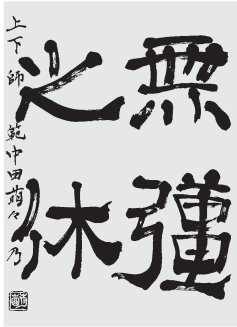 無彊
之休
上下師範中田萌々乃